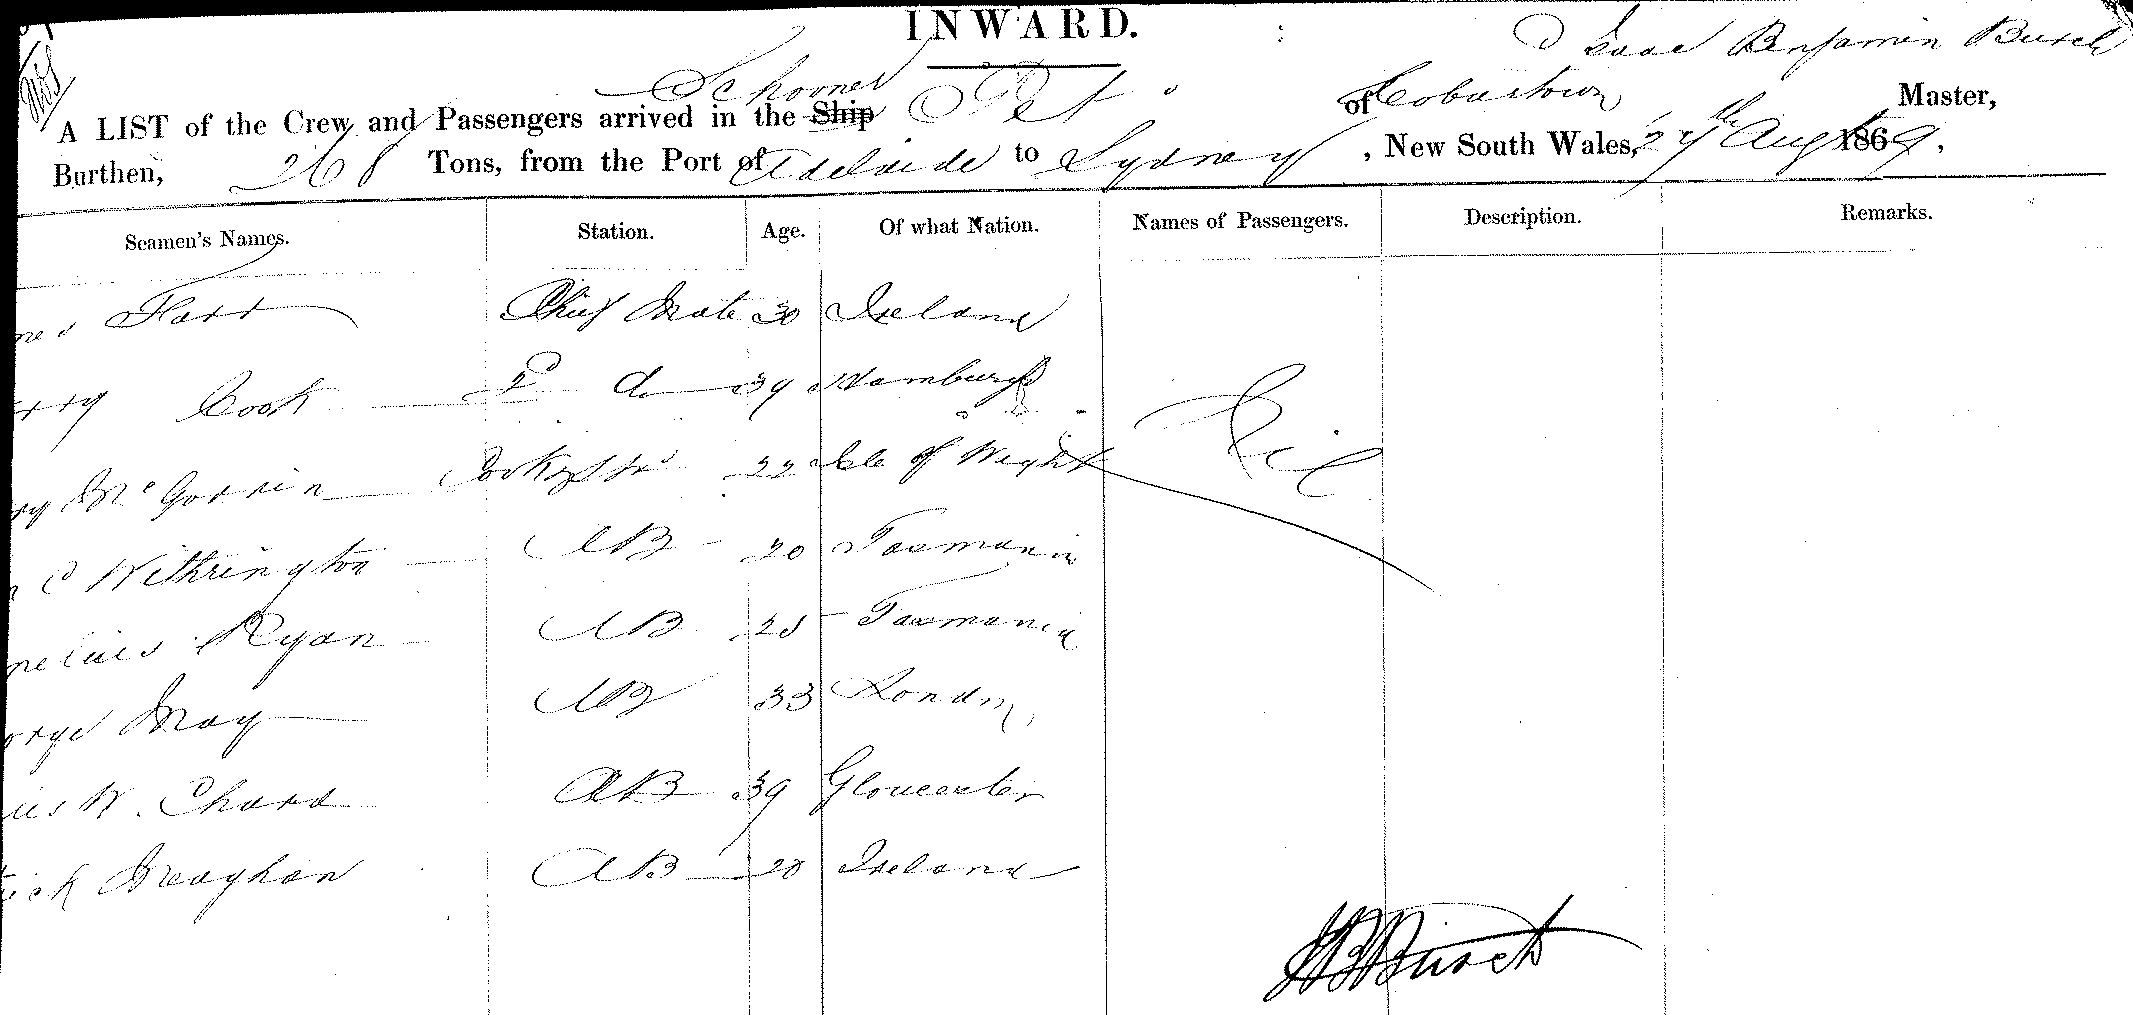 INWARD.
Isaac Benjamin Busch
A LIST of the Crew and Passengers arrived in the Ship Schooner Pet of Hobartown Master,
Burthen, 268 Tons, from the Port of Adelaide to Sydney, New South Wales, 27th Augt 1869.
Seamen's Names. Station. Age. Of what Nation. Names of Passengers. Description. Remarks.
mes Farr Chief Mate 30 Ireland
rry Cook 2d do 39 Hamburgh
Nil
ry McGorrin Cook & Std 22 Isle of Wight
n C Withrington AB 20 Tasmania
nelius Ryan AB 25 Tasmania
orge May AB 33 London
W. Chard AB 39 Gloucester
rick Meaghan AB 20 Ireland
I B Busch